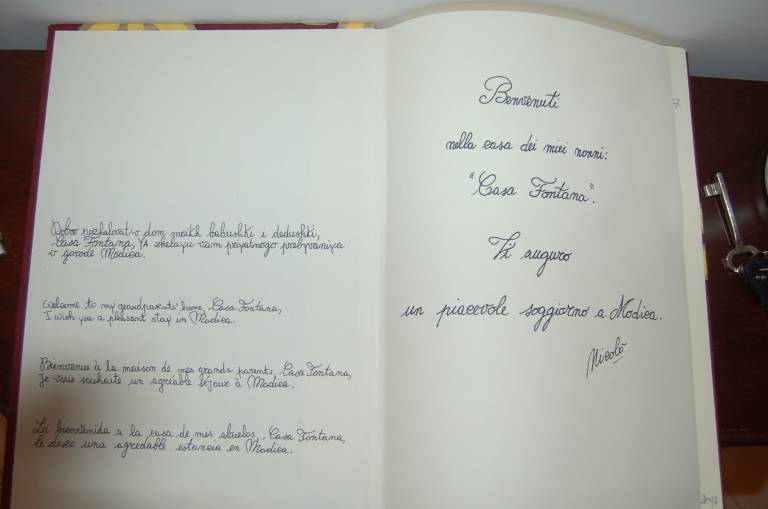 Dobro pozhalovat' v dom moikh babushki i dedushki,
Casa Fontana, YA zhelayu vam priyatnogo prebyvaniya
v gorode Modica.
Welcome to my grandparents' home, Casa Fontana,
I wish you a pleasant stay in Modica.
Bienvenue à la maison de mes grands parents, Casa Fontana,
Je vous souhaite un agréable séjour à Modica.
La bienvenida a la casa de mis abuelos, Casa Fontana,
le deseo una agradable estancia en Modica.
Benvenuti
nella casa dei miei nonni:
"Casa Fontana".
Vi auguro
un piacevole soggiorno a Modica.
Nicolò